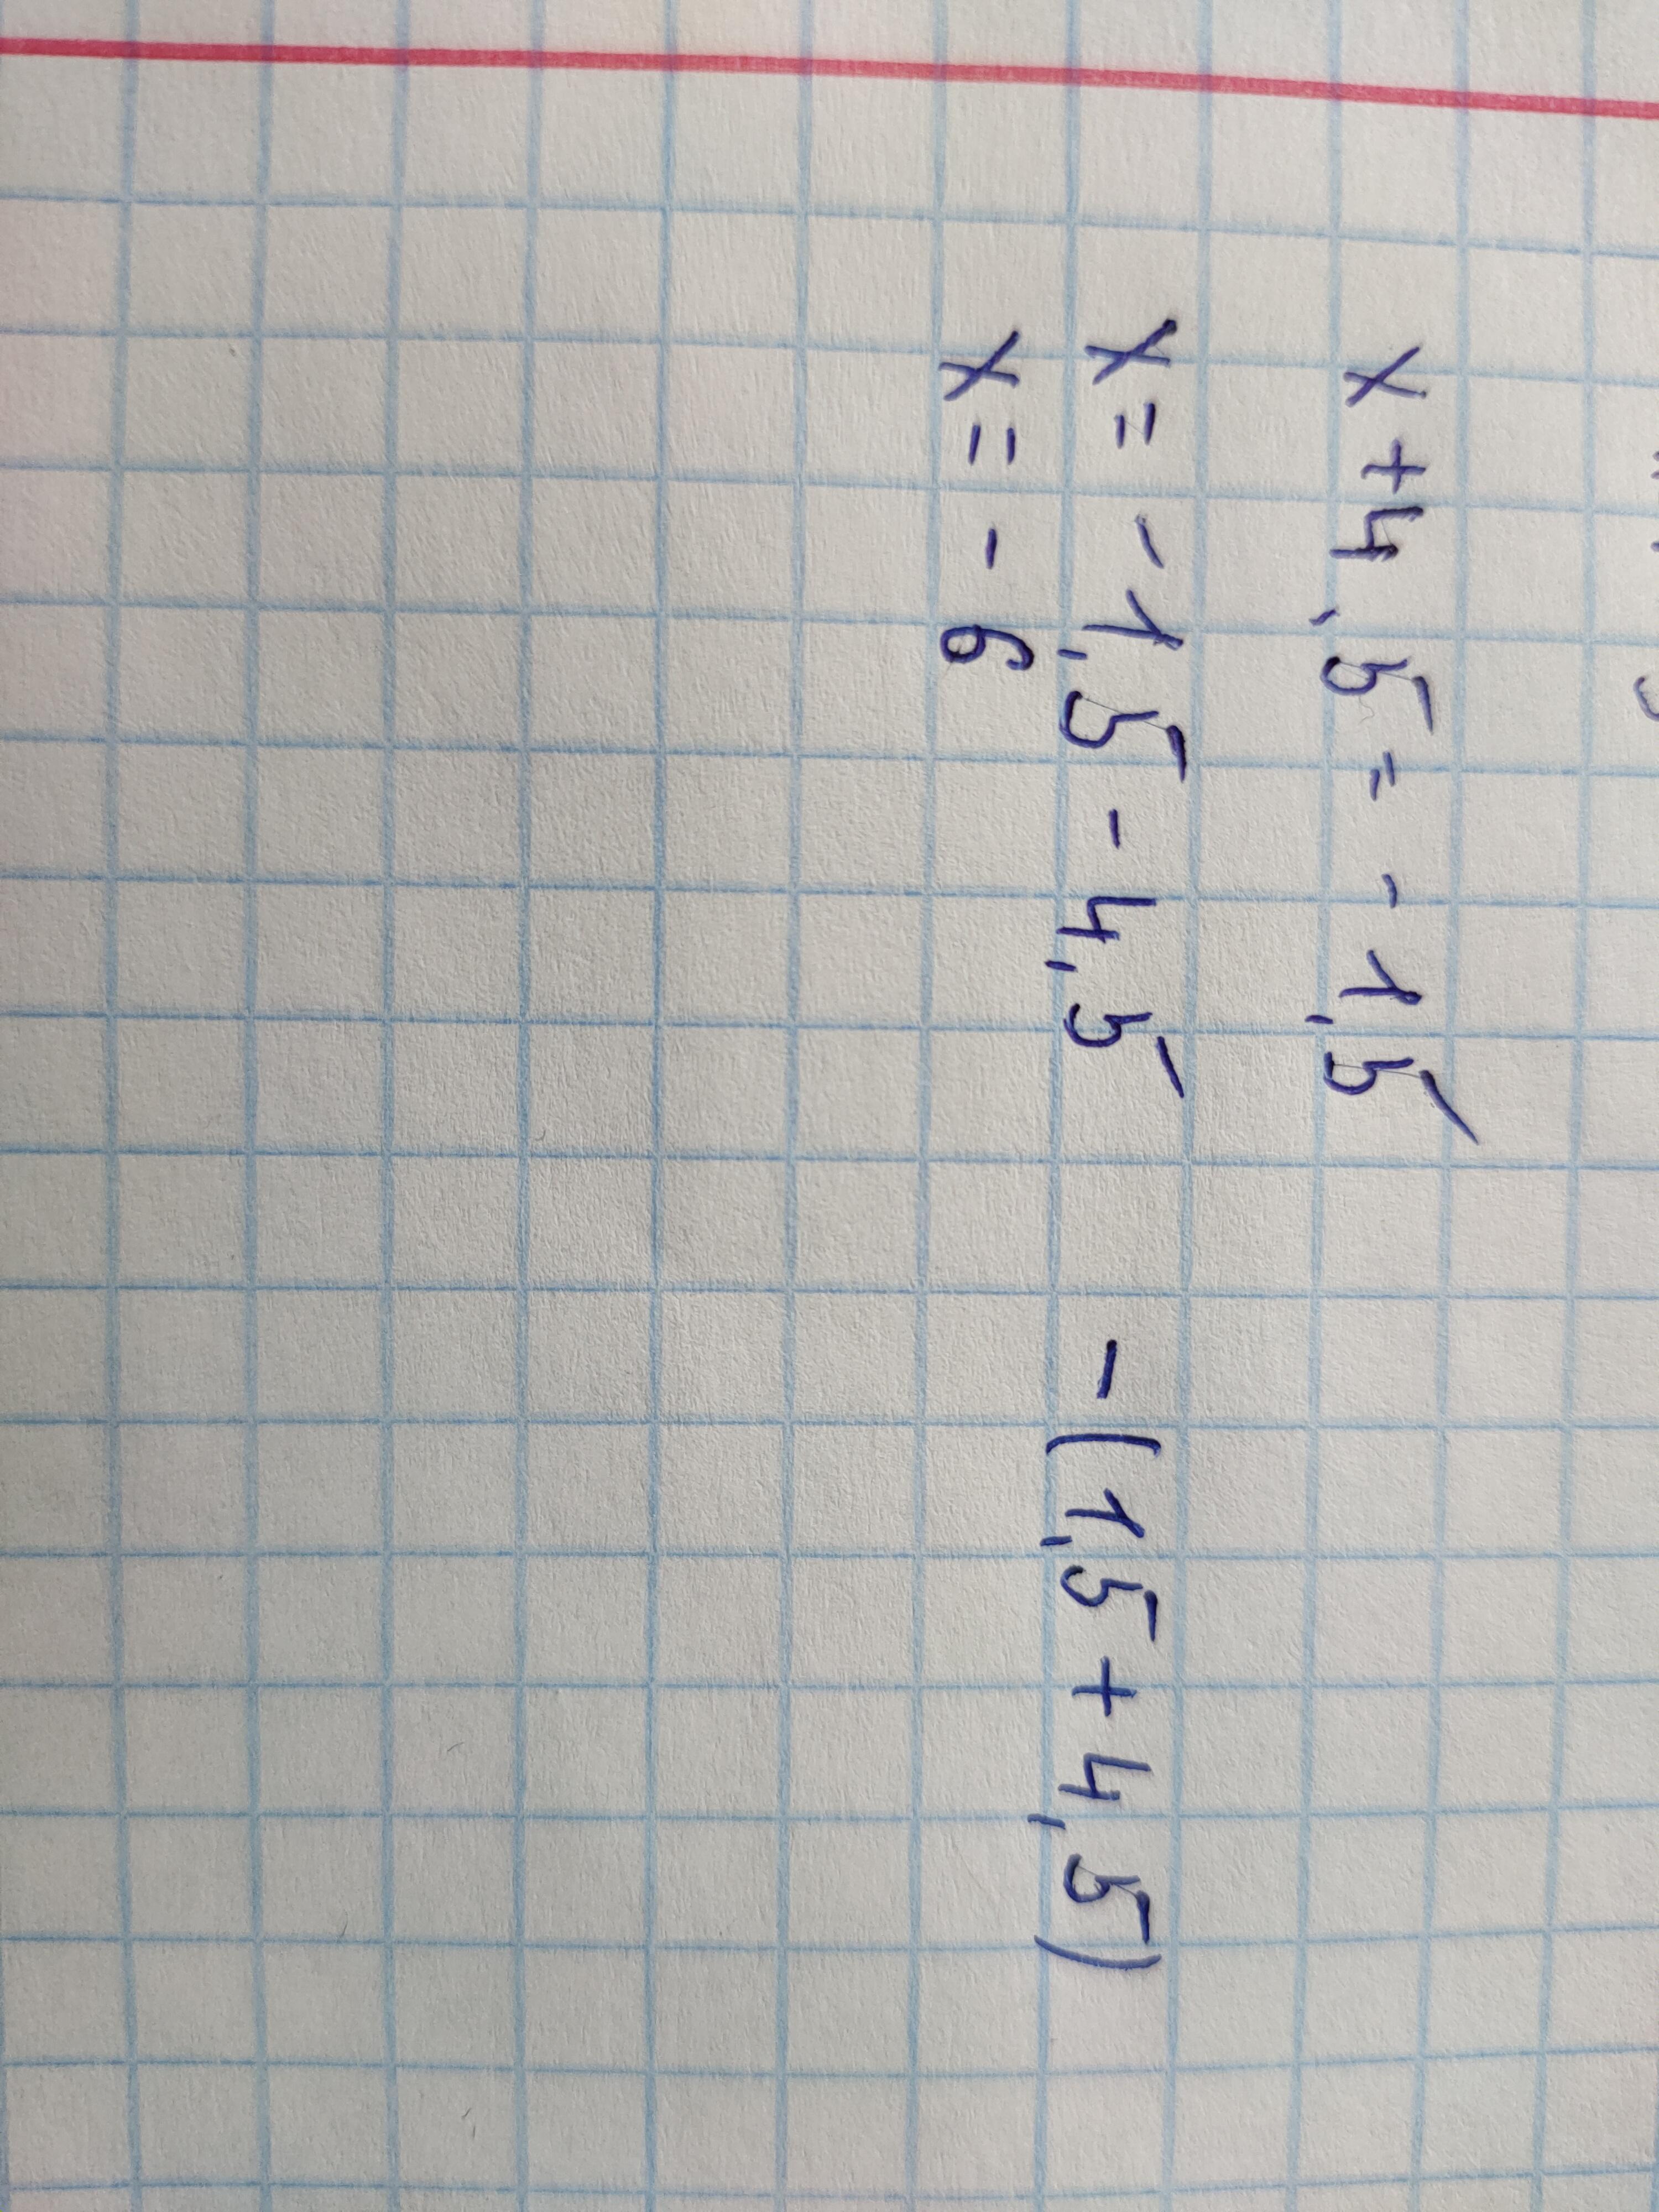 x + 4,5 = - 1,5
x = - 1,5 - 4,5 - (1,5 + 4,5)
x = - 6